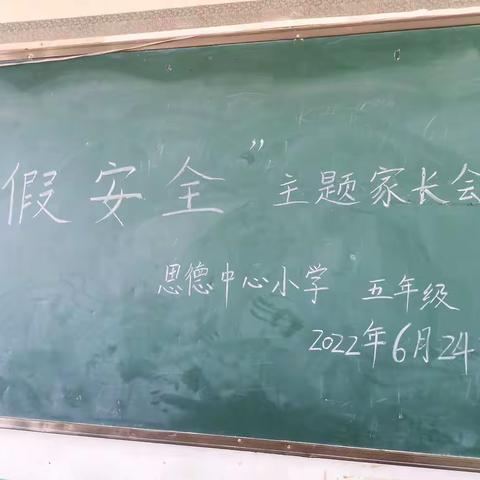 假安全”主题家长会
思德中心小学 五年级
2022年6月24